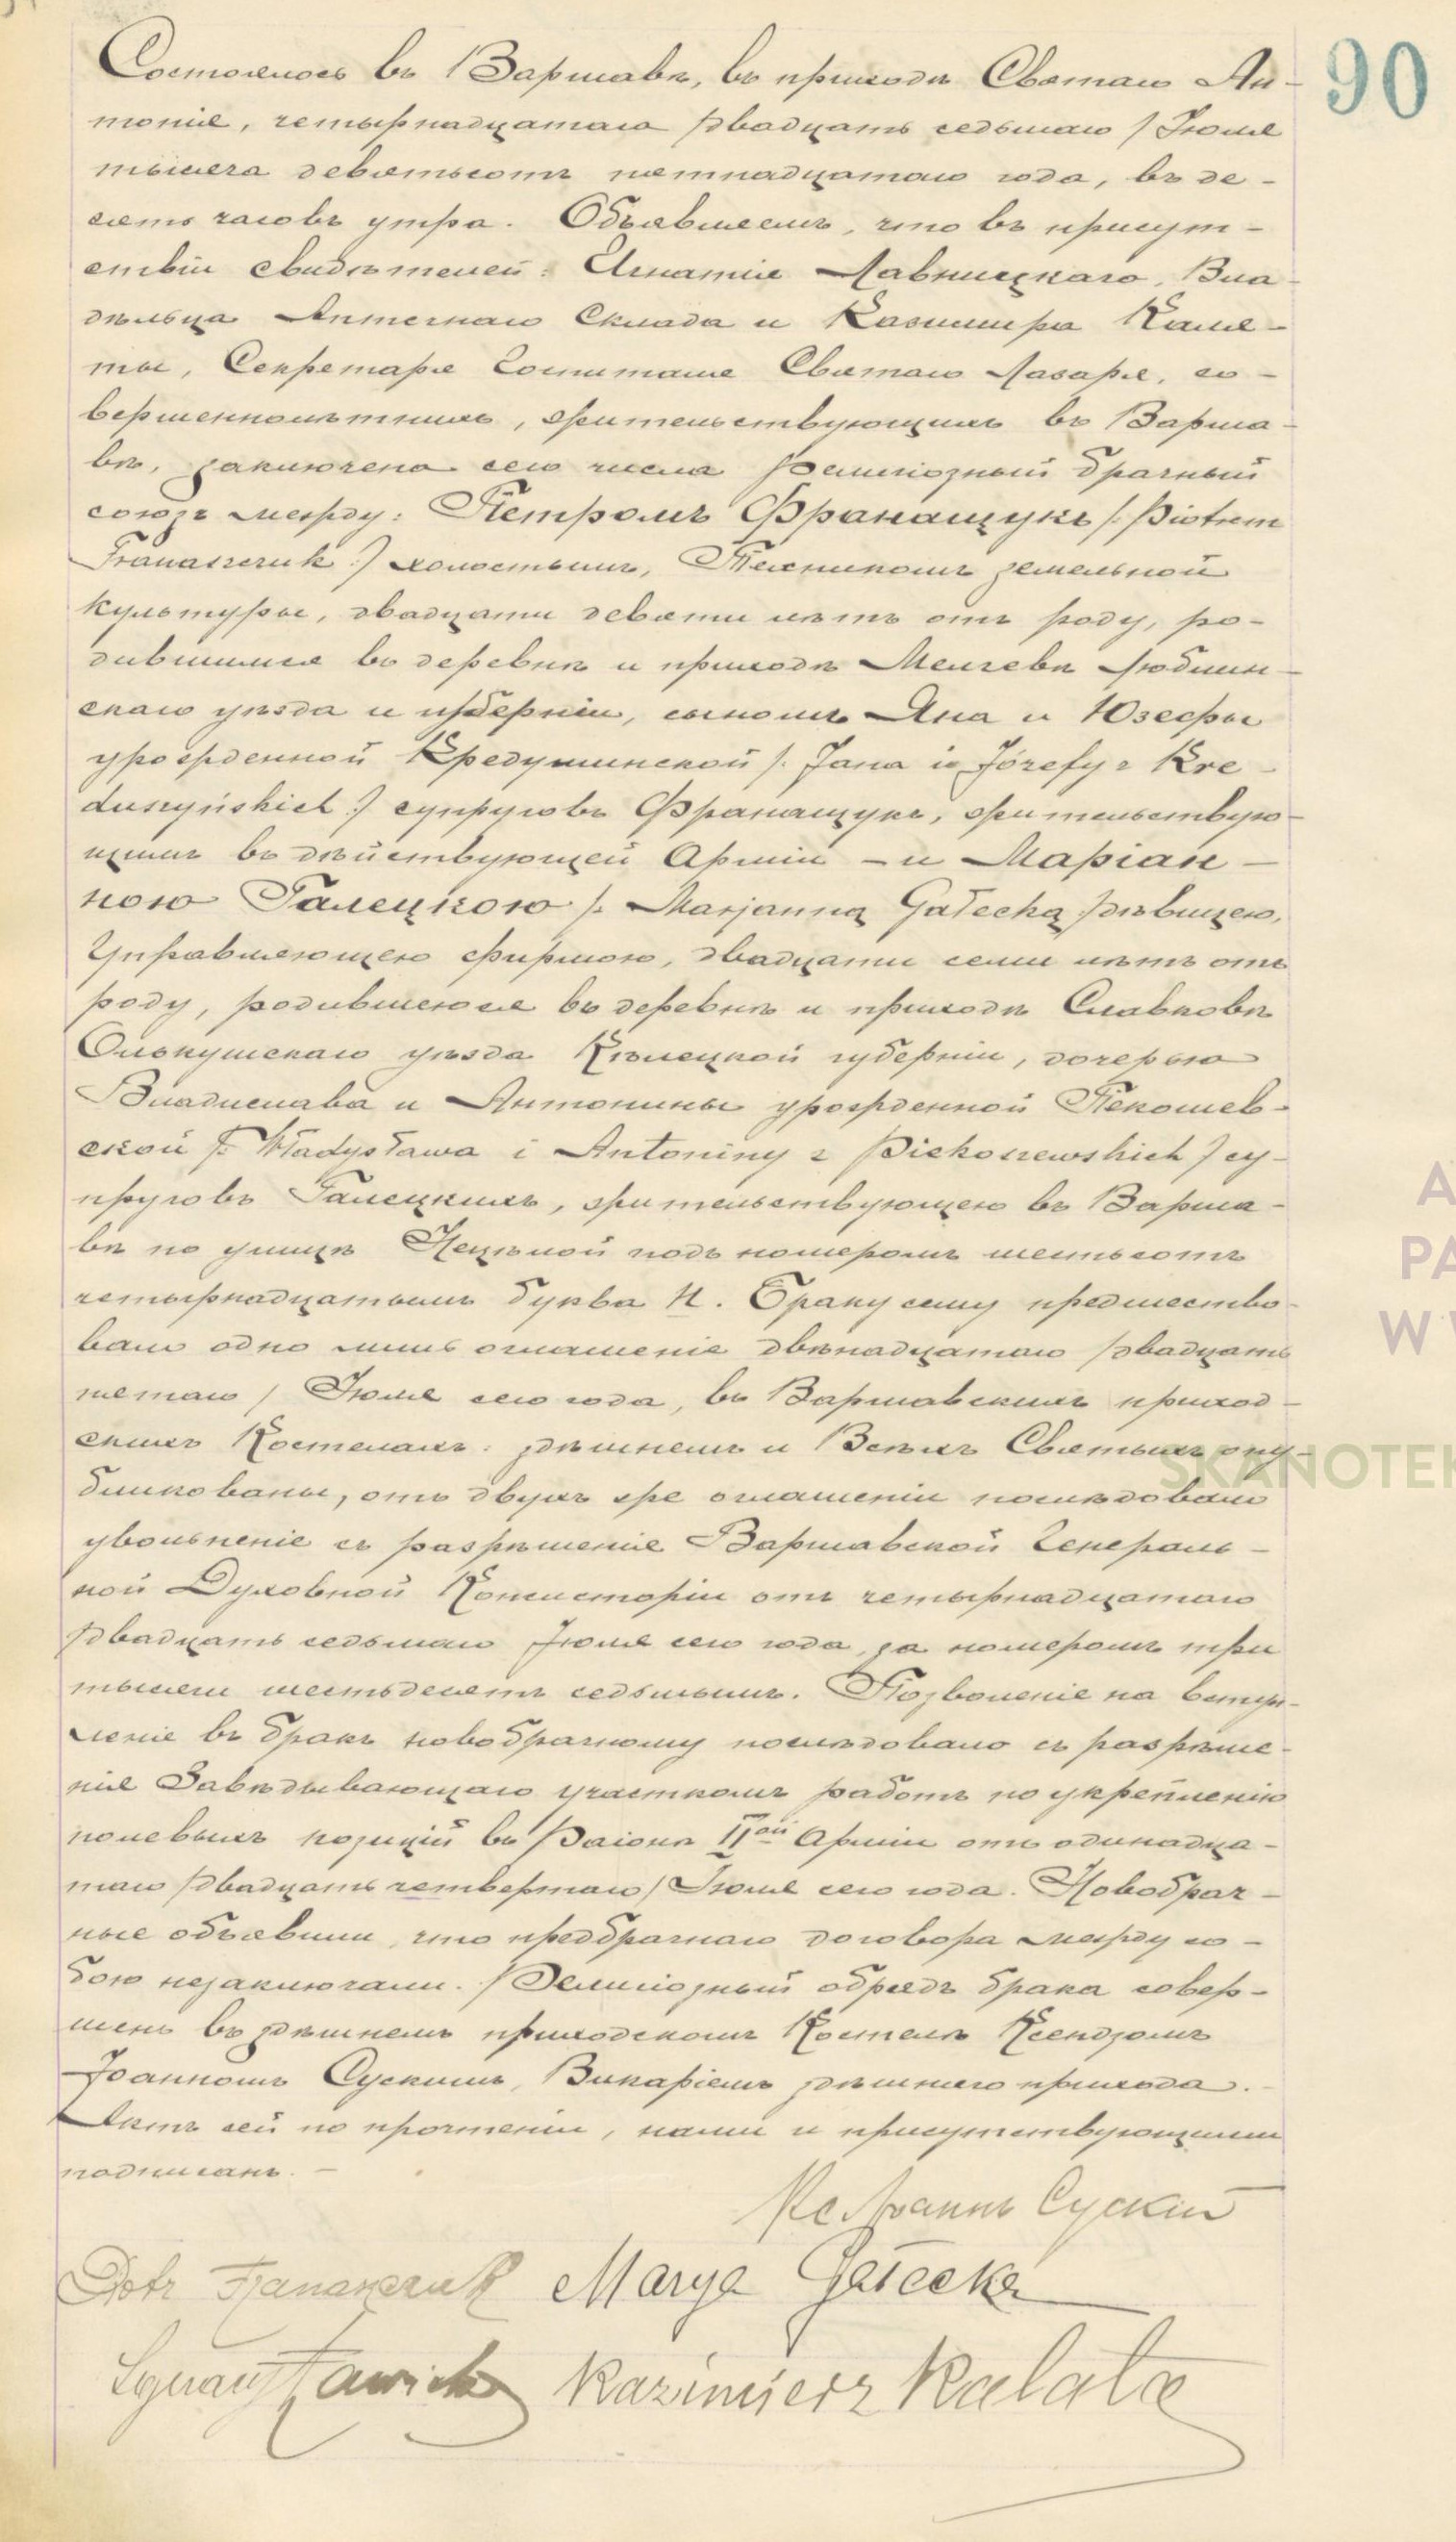 90
Состоялось въ Варшавѣ, въ приходѣ Святаго Ан-
тонія, четырнадцатаго /двадцать седьмаго/ Іюля
тысяча девятьсотъ пятнадцатаго года, въ де-
сять часовъ утра. Объявляемъ, что въ присут-
ствіи свидѣтелей: Игнатія Лавницкаго, Вла-
дѣльца Аптечнаго Склада и Казимира Каля-
ты, Секретаря Госпиталя Святаго Лазаря, со-
вершеннолѣтнихъ, жительствующихъ въ Варша-
вѣ, заключенъ сего числа религіозный брачный
союзъ между: Петромъ Франащукъ /: Piotrem
Franaszczuk :/ холостымъ, Техникомъ земельной
культуры, двадцати девяти лѣтъ отъ роду, ро-
дившимся въ деревнѣ и приходѣ Мелгевѣ Люблин-
скаго уѣзда и губерніи, сыномъ Яна и Юзефы
урожденной Кредушинской /: Jana i Józefy z Kre-
duszyńskich :/ супруговъ Франащукъ, жительствую-
щимъ въ дѣйствующей Арміи - и Маріан-
ною Галецкою /: Marjanną Gałecką / дѣвицею,
Управляющею фирмою, двадцати семи лѣтъ отъ
роду, родившеюся въ деревнѣ и приходѣ Славковѣ
Олькушскаго уѣзда Кѣлецкой губерніи, дочерью
Владислава и Антонины урожденной Пекошев-
ской /: Władysława i Antoniny z Piekoszewskich / су-
пруговъ Галецкихъ, жительствующею въ Варша-
вѣ по улицѣ Нецѣлой подъ номеромъ шестьсотъ
четырнадцатымъ буква Н. Браку сему предшество-
вало одно лишь оглашеніе двѣнадцатаго /двадцать
пятаго / Іюля сего года, въ Варшавскихъ приход-
скихъ Костелахъ: здѣшнемъ и Всѣхъ Святыхъ опу-
бликованы, отъ двухъ же оглашеніи послѣдовало
увольненіе съ разрѣшенія Варшавской Генераль-
ной Духовной Консисторіи отъ четырнадцатаго
/двадцать седьмаго Іюля сего года, за номеромъ три
тысячи шестьдесятъ седьмымъ. Позволеніе на вступ-
леніе въ бракъ новобрачному послѣдовало съ разрѣше-
нія Завѣдывающаго участкомъ работъ по укрѣпленію
полевыхъ позицій въ Раіонѣ IIой Арміи отъ одинадца-
таго /двадцать четвертаго/ Іюля сего года. Новобрач-
ные объявили, что предбрачнаго договора между со-
бою незаключали. Религіозный обрядъ брака совер-
шенъ въ здѣшнемъ приходскомъ Костелѣ Ксендзомъ
Іоанномъ Сускимъ, Викаріемъ здѣшняго прихода. -
Актъ сей по прочтеніи, нами и присутствующими
подписанъ. -
Кс Іоаннъ Сускій
Piotr Franaszczuk Marya Gałecka
Ignacy Ławnicki Kazimierz Kalata
SKANOTEK
A
PA
W W